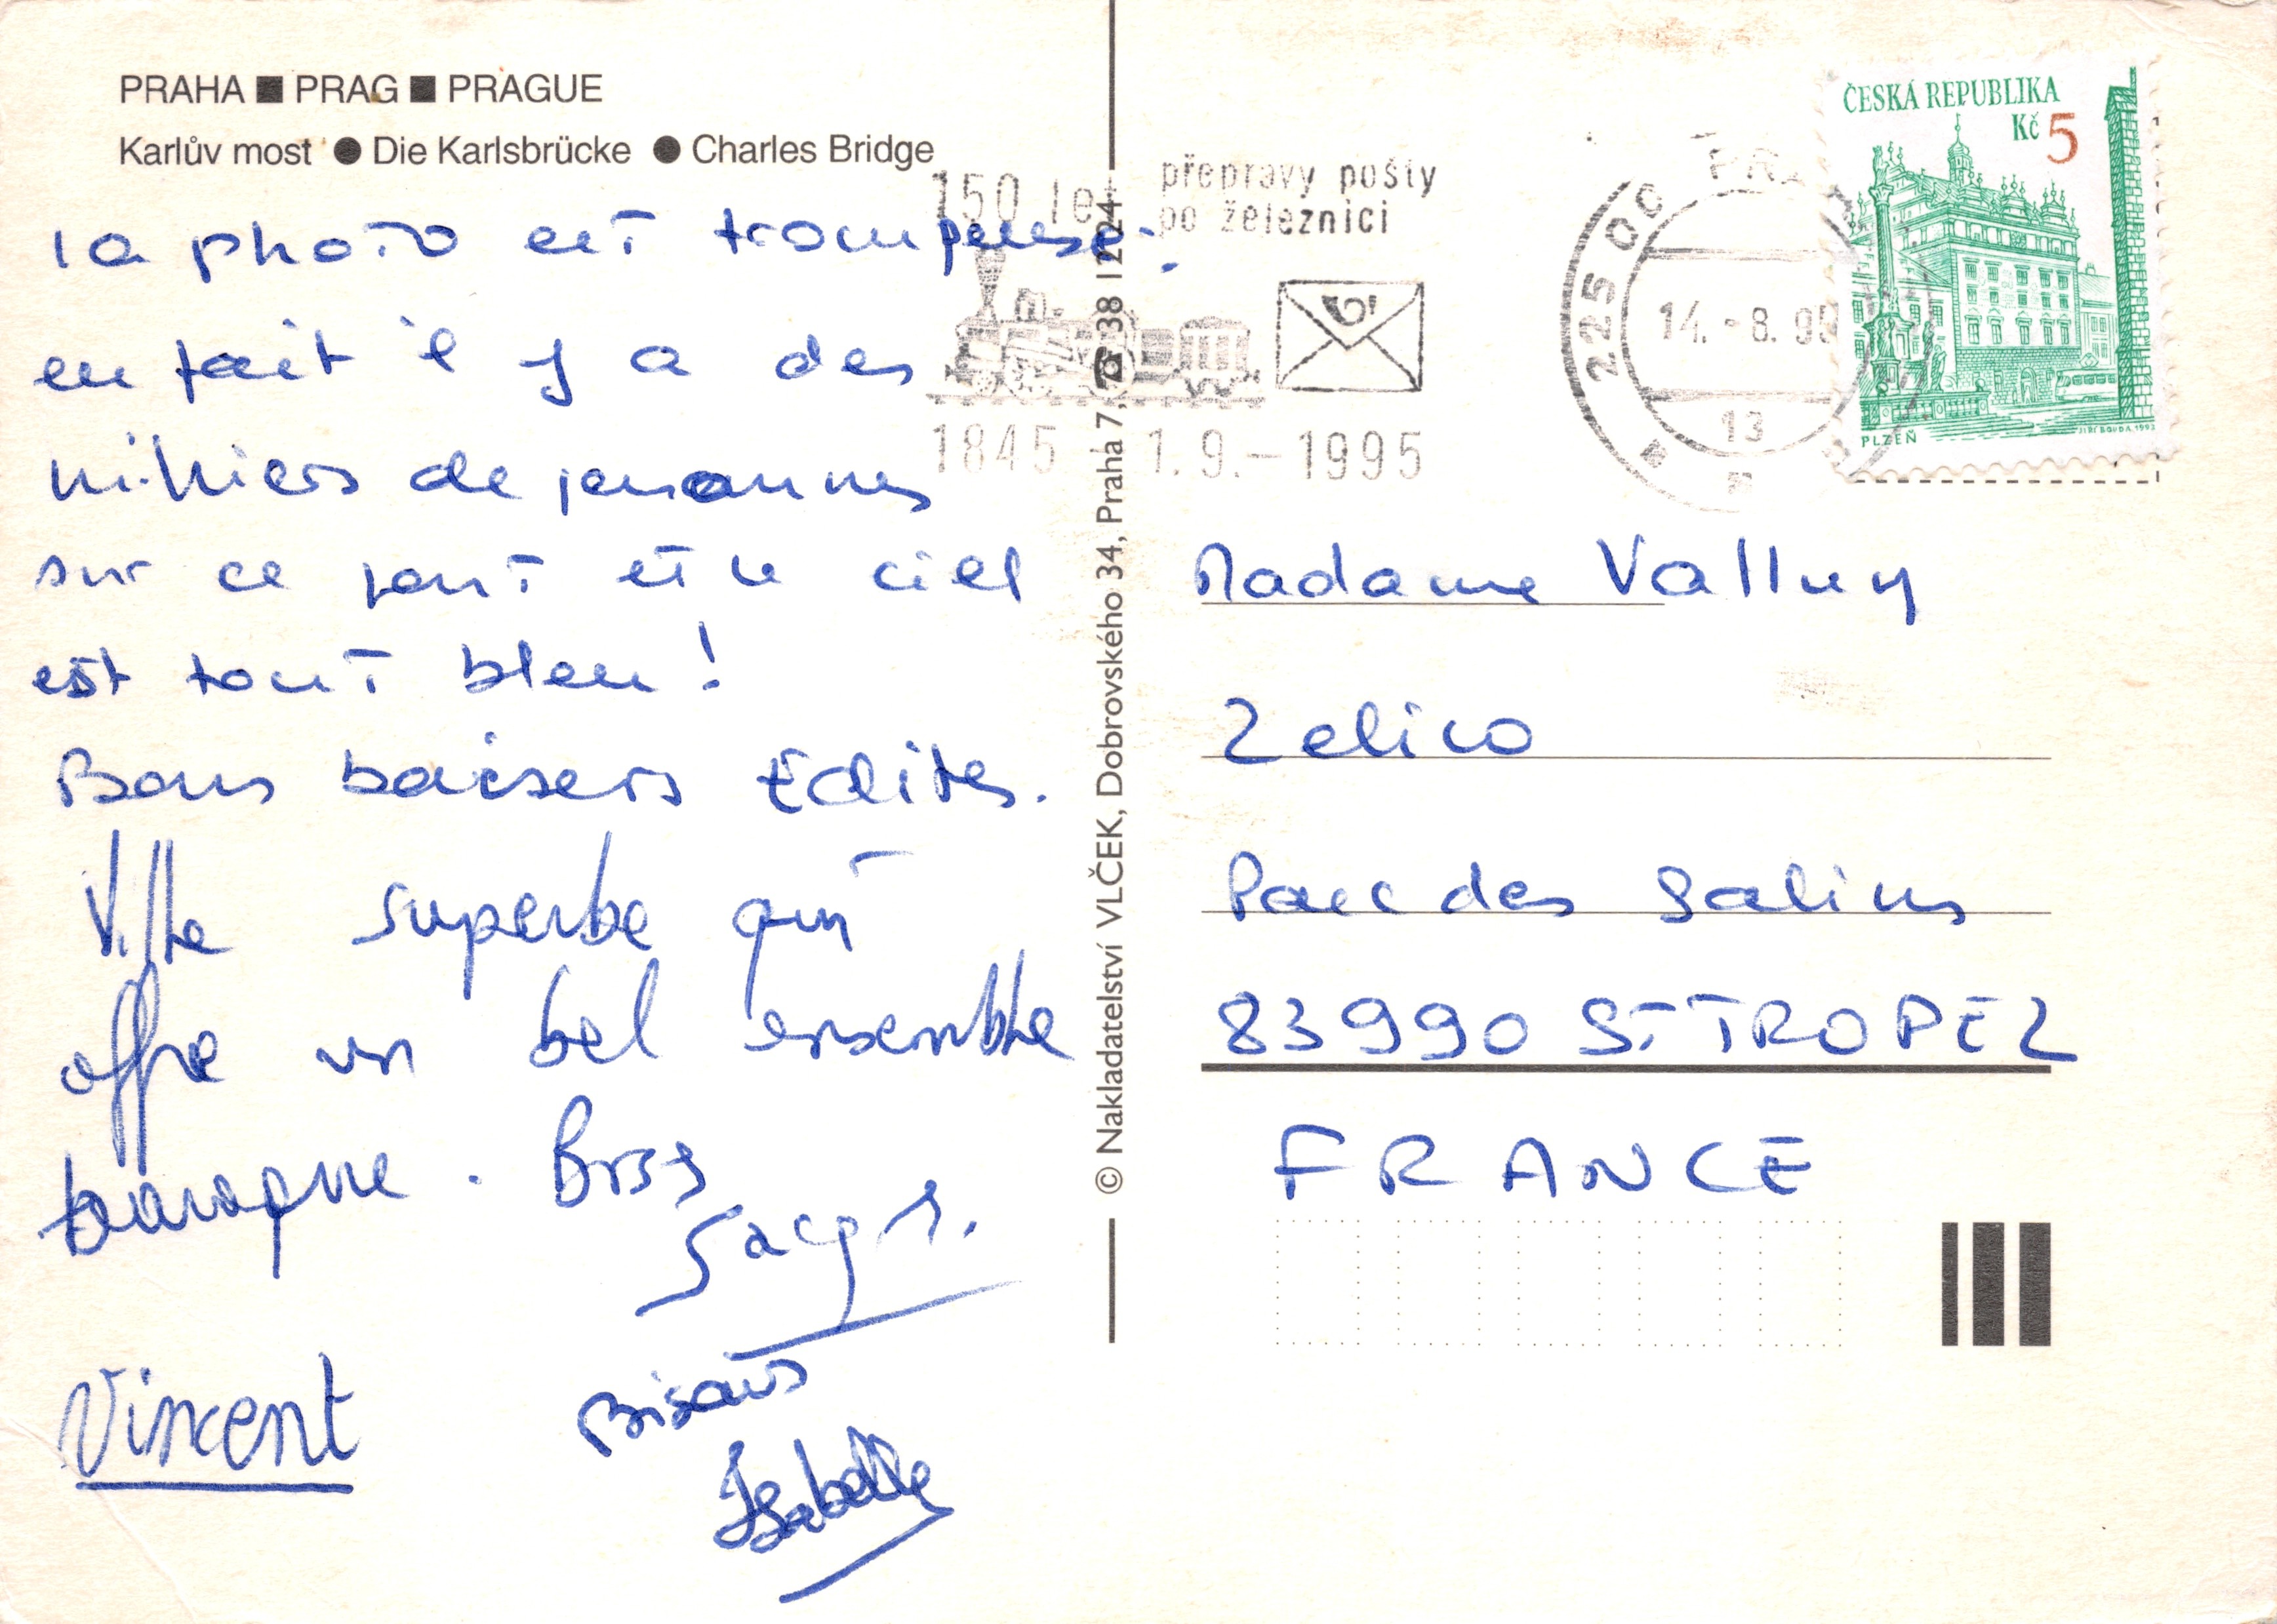 PRAHA ■ PRAG ■ PRAGUE
Karlův most ● Die Karlsbrücke ● Charles Bridge
la photo est trompeuse:
en fait il y a des
milliers de personnes
sur ce pont et le ciel
est tout bleu!
Bons baisers Edites.
Ville superbe qui
offre un bel ensemble
baroque. Bises
Jacq s.
Vincent
Bisous
Isabelle
© Nakladatelství VLČEK, Dobrovského 34, Praha 7, ☎ 38 12 24
150 let přepravy pošty
po železnici
1845 1.9.-1995
225 00
14.-8.95
13
ČESKÁ REPUBLIKA
Kč 5
PLZEŇ
JIŘÍ BOUDA 1993
Madame Valluy
Zelico
Parc des Salins
83990 ST TROPEZ
FRANCE